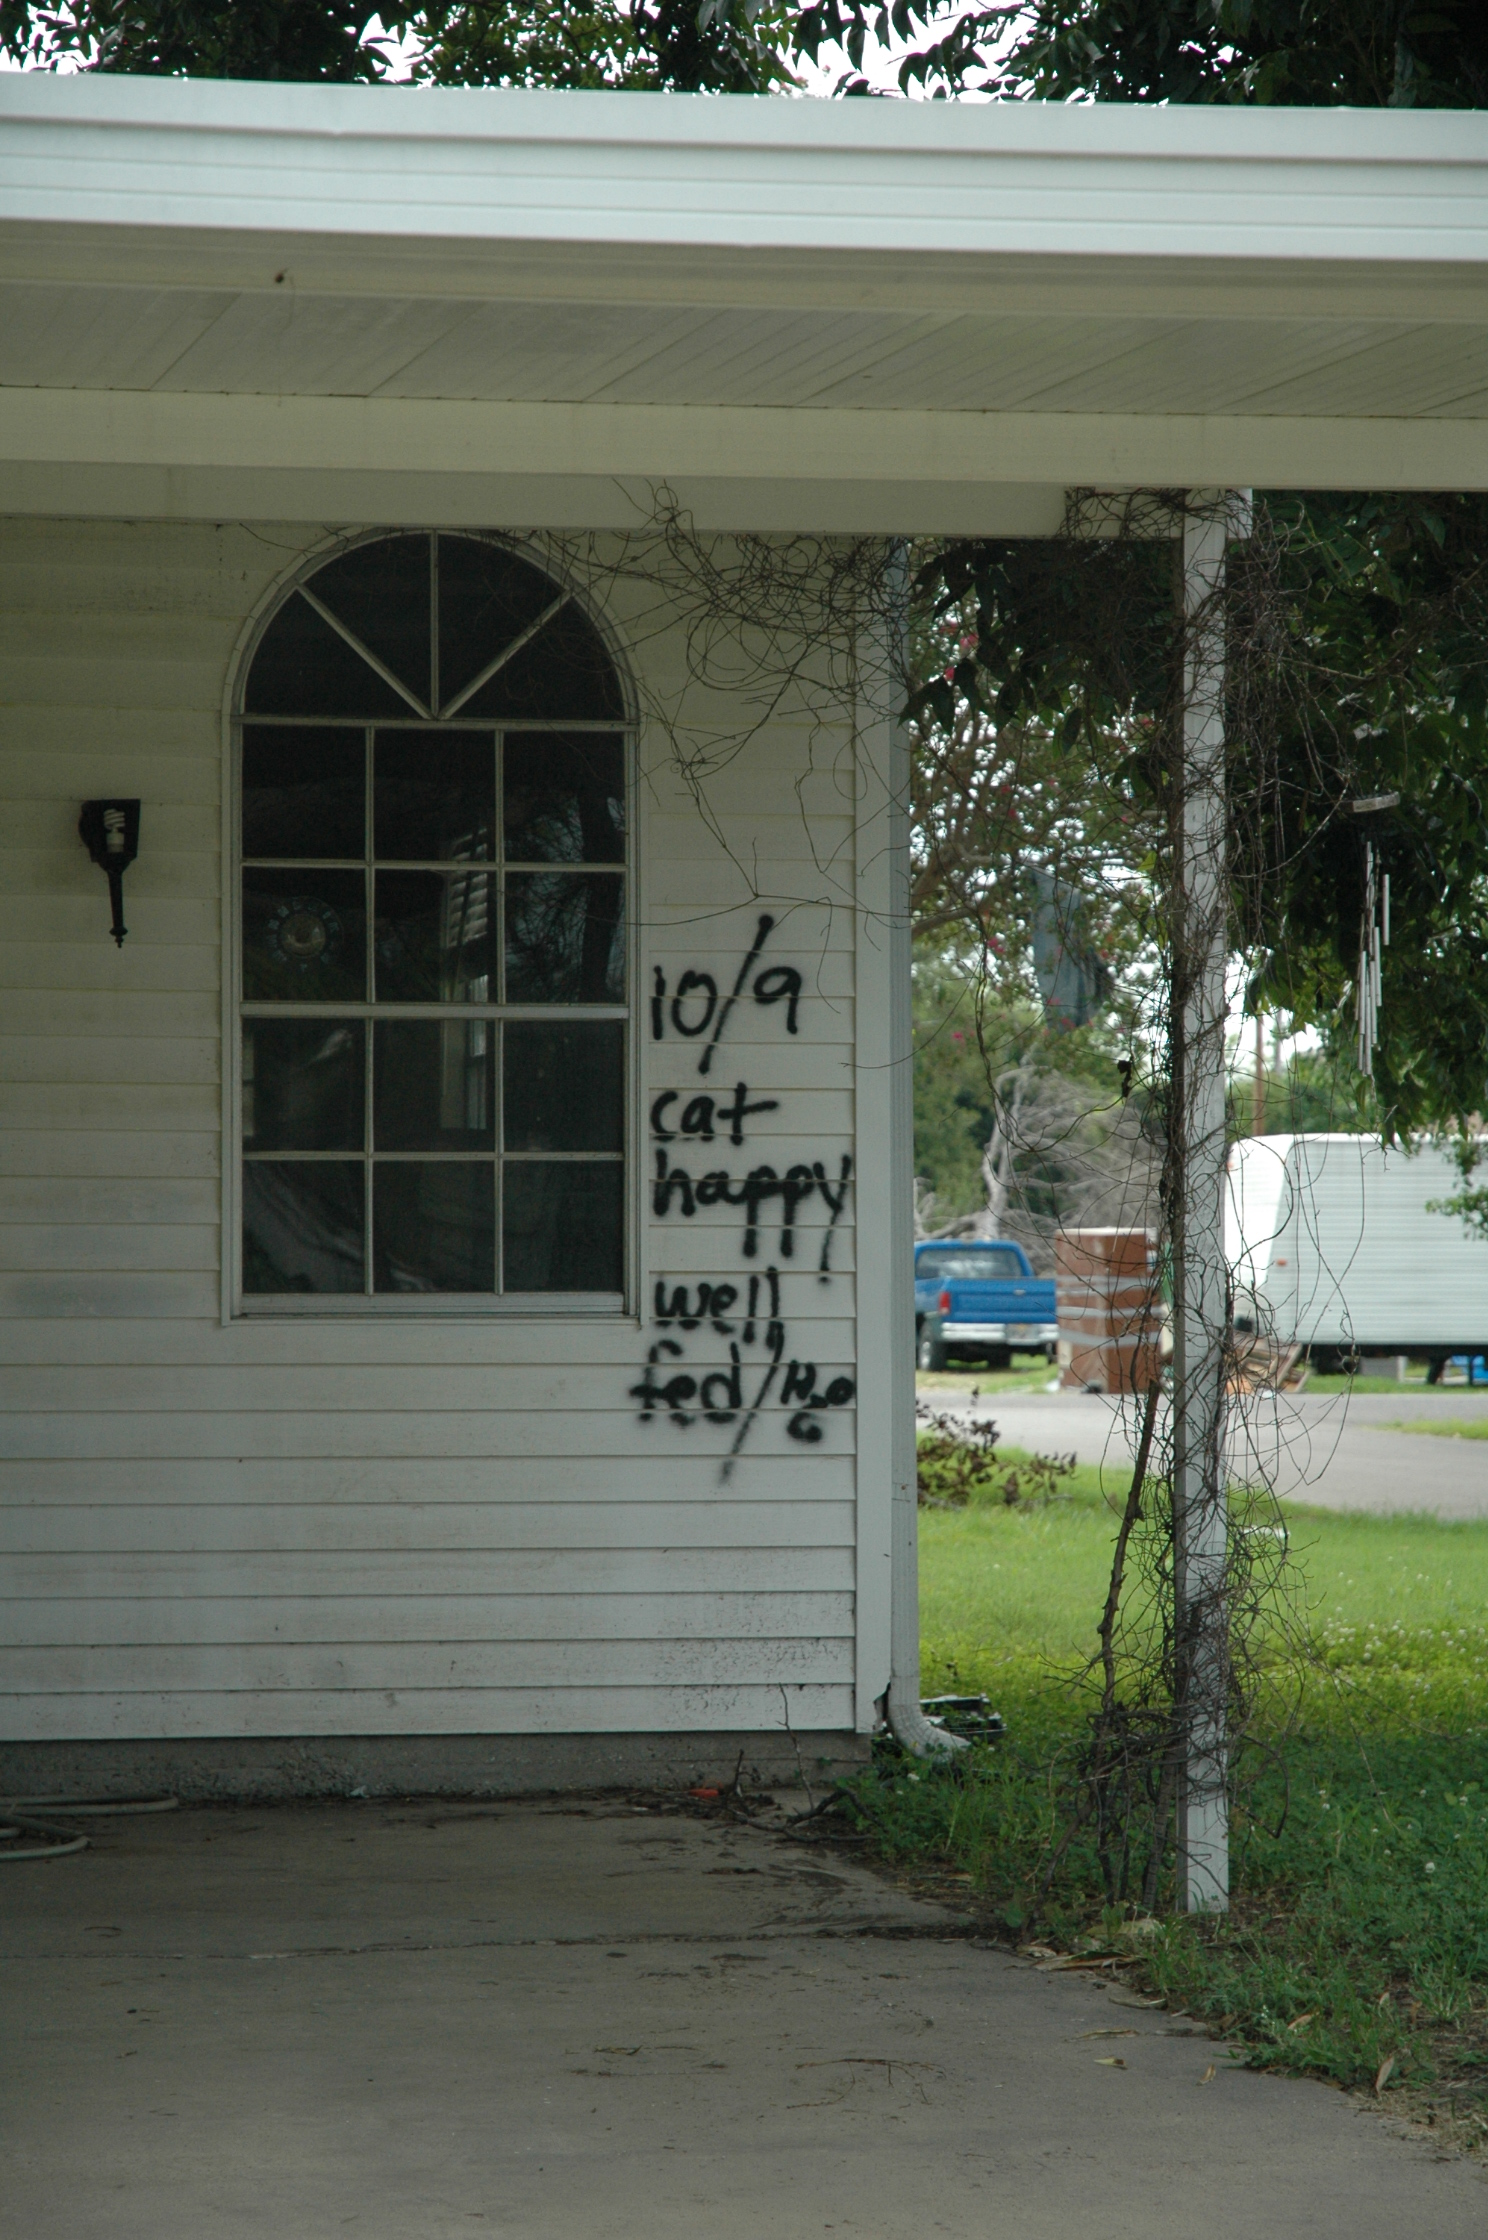 10/9
cat
happy
well
fed/H2O
G